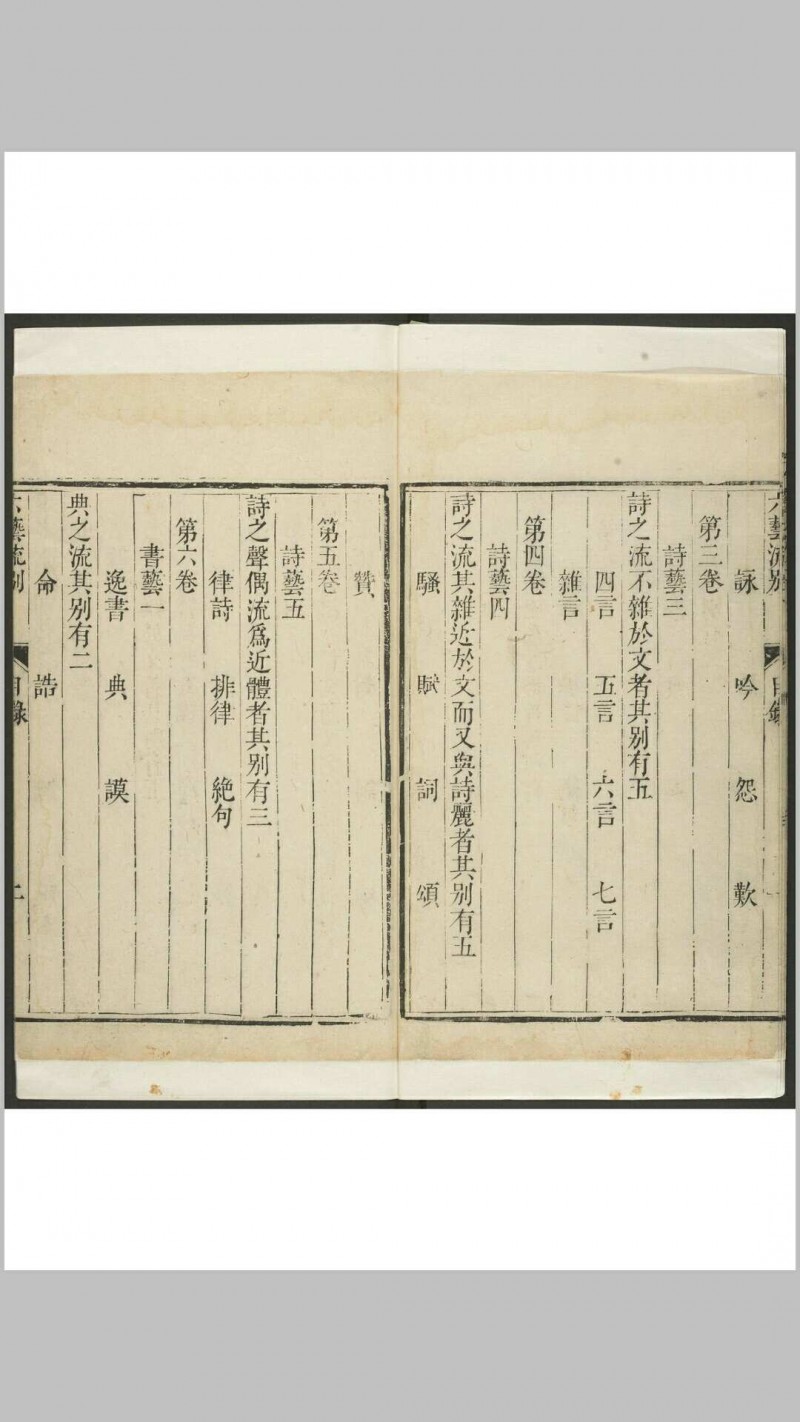 六藝流別　目錄
詠　吟　怨　歎
第三卷
詩藝三
詩之流不雜於文者其别有五
四言　五言　六言　七言
雜言
第四卷
詩藝四
詩之流其雜近於文而又與詩麗者其别有五
騷　賦　詞　頌
贊
第五卷
詩藝五
詩之聲偶流爲近體者其别有三
律詩　排律　絶句
第六卷
書藝一
逸書　典　謨
典之流其别有二
命　誥
六藝流别　目錄　二